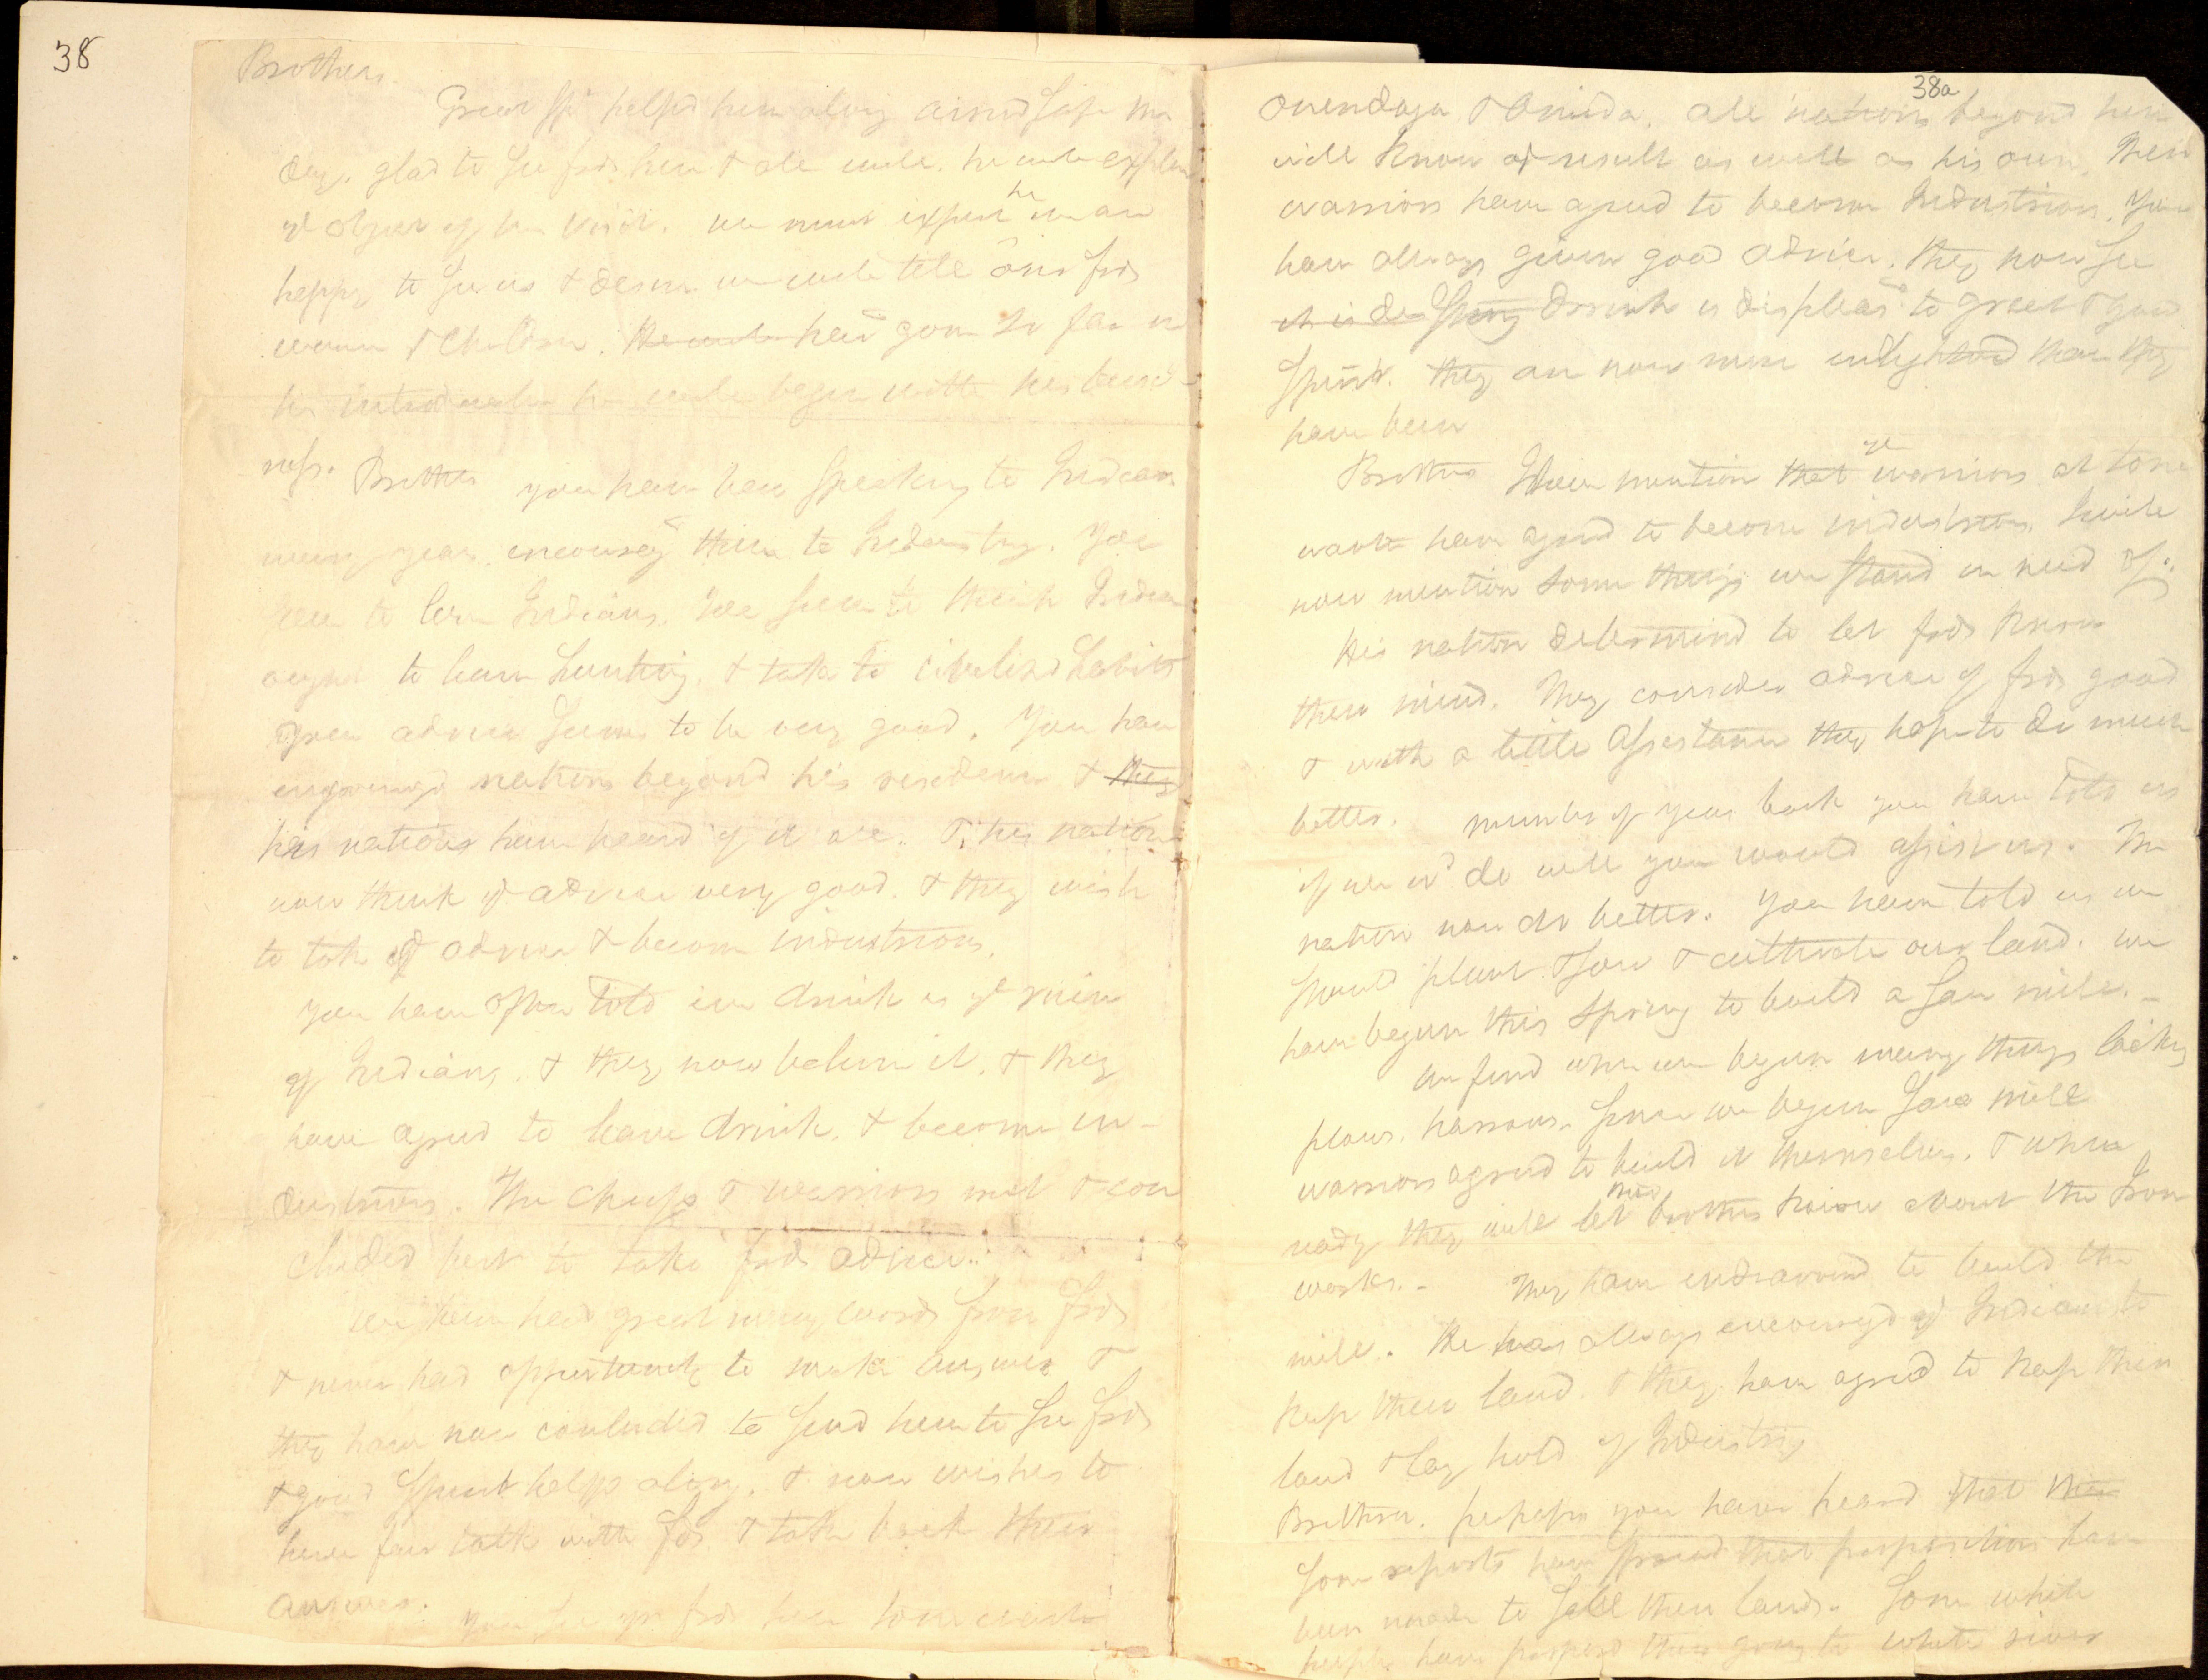 38
Brothers.
Great Spt helpd him along arrivd safe this
day. glad to see frds here & all well. he will explain
ye object of his visit. we must expect he
happy to see us & desires we will tell our frds
women & children. He will havg gone so far in
his introduction he will begin with his busi-
ness.
Brothers you have been speaking to Indians
many years encouragg them to Industry. You
seem to love Indians. You seem to think Indians
ought to leave hunting, & take to civilizd habits
your advice seems to be very good. You have
encouragd nations beyond his residence & they
his nations have heard of it all. & his nations
now think ye advice very good. & they wish
to take ye advice & become industrious.
You have often told him drink is ye ruin
of Indians, & they now believe it, & they
have agreed to leave drink, & become in-
dustrious. The Chiefs & warriors met & con
cluded best to take frds advice.
We have had great many words from frds
& never had opportunity to make answer &
they have now concluded to send him to see frds
& good Spirit helps along, & now wishes to
have few talks with frds & take back their
answer.
You see yr frds here
38a
Onendaga & Onieda. all nations beyond him
will know of result as well as his own. Their
warriors have agreed to become Industrious. You
have always given good advice. they now see
it is Strong drink is displeasg to great & good
Spirit. they are now more enlightend than they
have been
Brothers I have mention that ye warriors at Tone
wanta have agreed to become industrious. I will
now mention some things we stand in need of:
His nation determind to let frds know
their mind. They consider advice of frds good
& with a little assistance they hope to do much
better. number of years back you have told us
if we wd do well you would assist us. The
nation now do better. You have told us we
should plant & sow & cultivate our land. we
have begun this Spring to build a saw mill. -
We find when we begin many things lacking
plows, harrows. Since we begun Saw mill
warriors agreed to build it themselves. & when
ready they will let their brothers know about the Iron
works. - They have endeavored to build the
mill. He has always encouragd ye Indians to
keep their land. & they have agreed to keep their
land & lay hold of Industry
Brethren. perhaps you have heard that their
some reports have spread that propositions have
been made to sell their lands. Some white
people have proposed their going to white river